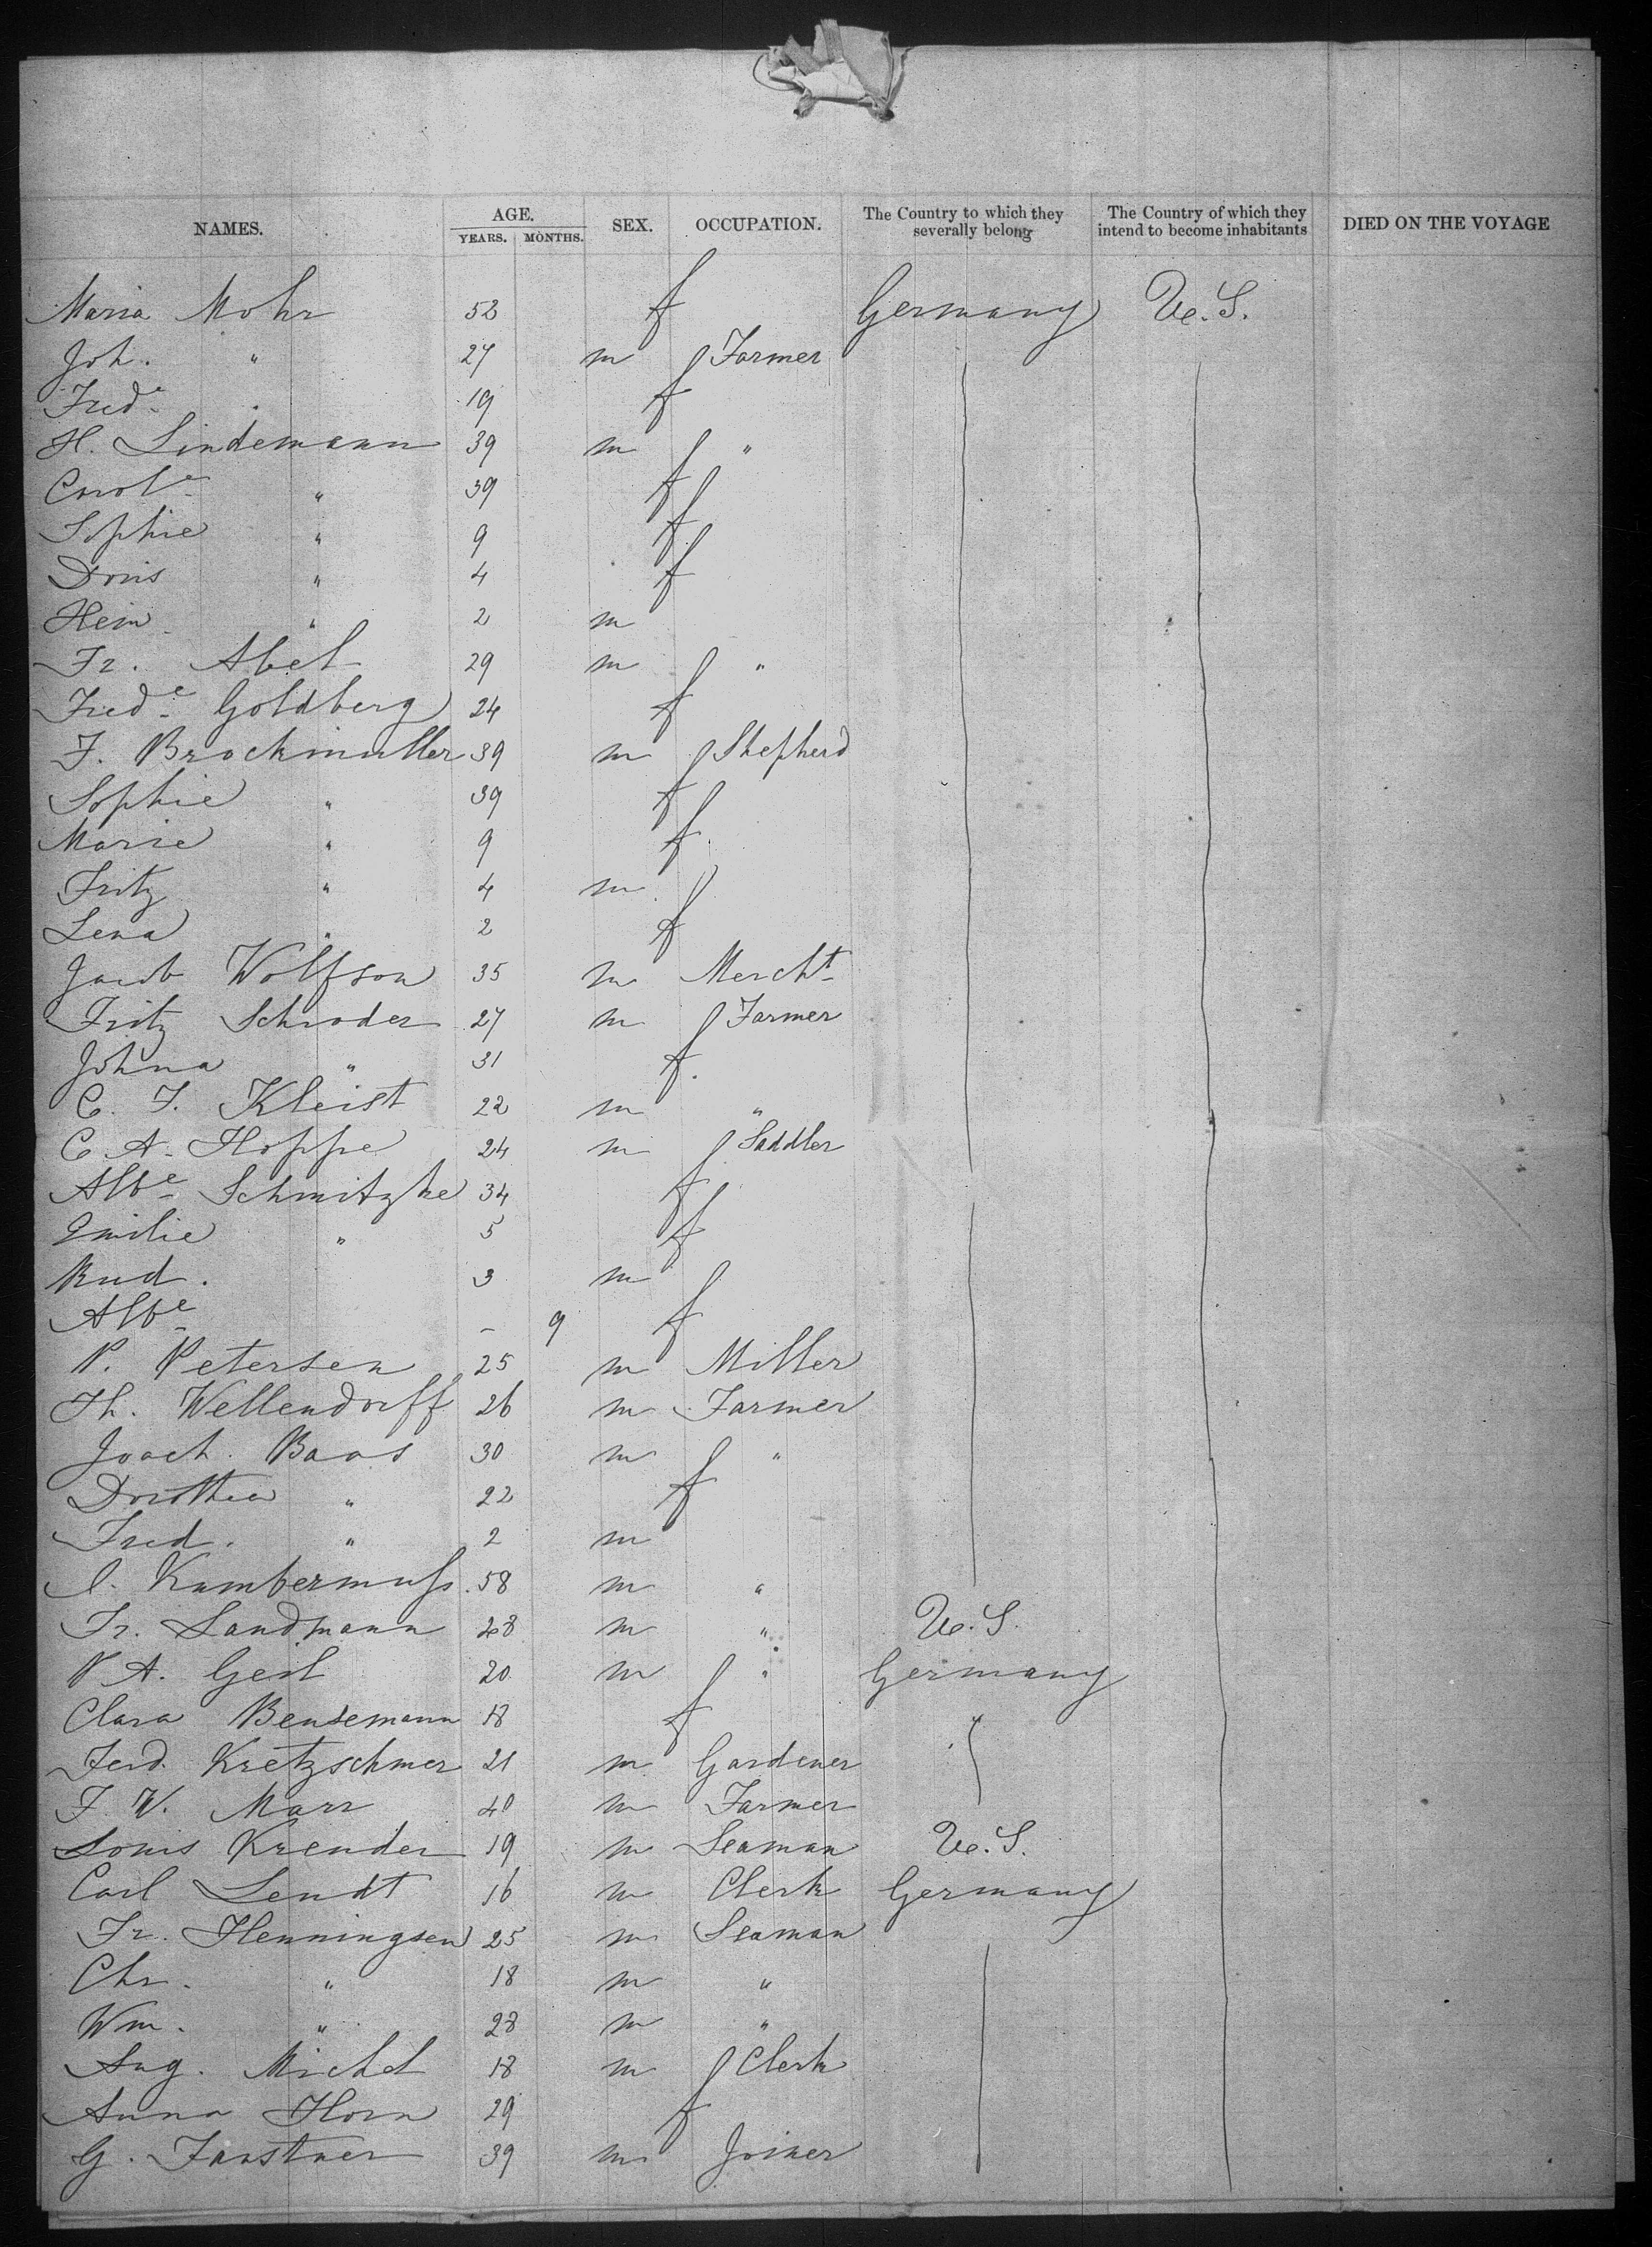 NAMES. AGE. YEARS. MONTHS. SEX. OCCUPATION. The Country to which they severally belong The Country of which they intend to become inhabitants DIED ON THE VOYAGE
Maria Mohr 52 f Germany U.S.
Joh. " 27 m Farmer
Fred.e 19 f
H. Lindemann 39 m "
Carol.e " 39 f
Sophie " 9 f
Doris " 4 f
Hein " 2 m
Fr. Abel 29 m "
Fred.e Goldberg 24 f
F. Brockmuller 39 m Shepherd
Sophie " 39 f
Marie " 9 f
Fritz " 4 m
Lena " 2 f
Jacob Wolfson 35 m Mercht
Fritz Schroder 27 m Farmer
Johna " 31 f
C. F. Kleist 22 m "
C. A. Hoppe 24 m Saddler
Albe Schmitzke 34 f
Emilie " 5 f
Rud. 3 m
Albe - 9 f
P. Petersen 25 m Miller
Th. Wellendorff 26 m Farmer
Joach. Baas 30 m "
Dorothea " 22 f
Fred. " 2 m
Kumbermuss 58 m "
Fr. Landmann 28 m " U.S.
P A. Geil 20 m " Germany
Clara Bensemann 18 f "
Ferd. Kretzschmer 21 m Gardener
F. W. Marr 40 m Farmer
Louis Krender 19 m Seaman U.S.
Carl Lendt 16 m Clerk Germany
Fr. Henningsen 25 m Seaman
Chr. " 18 m "
Wm. " 28 m "
Aug. Michel 18 m Clerk
Anna Horn 29 f
G. Fanstner 39 m Joiner